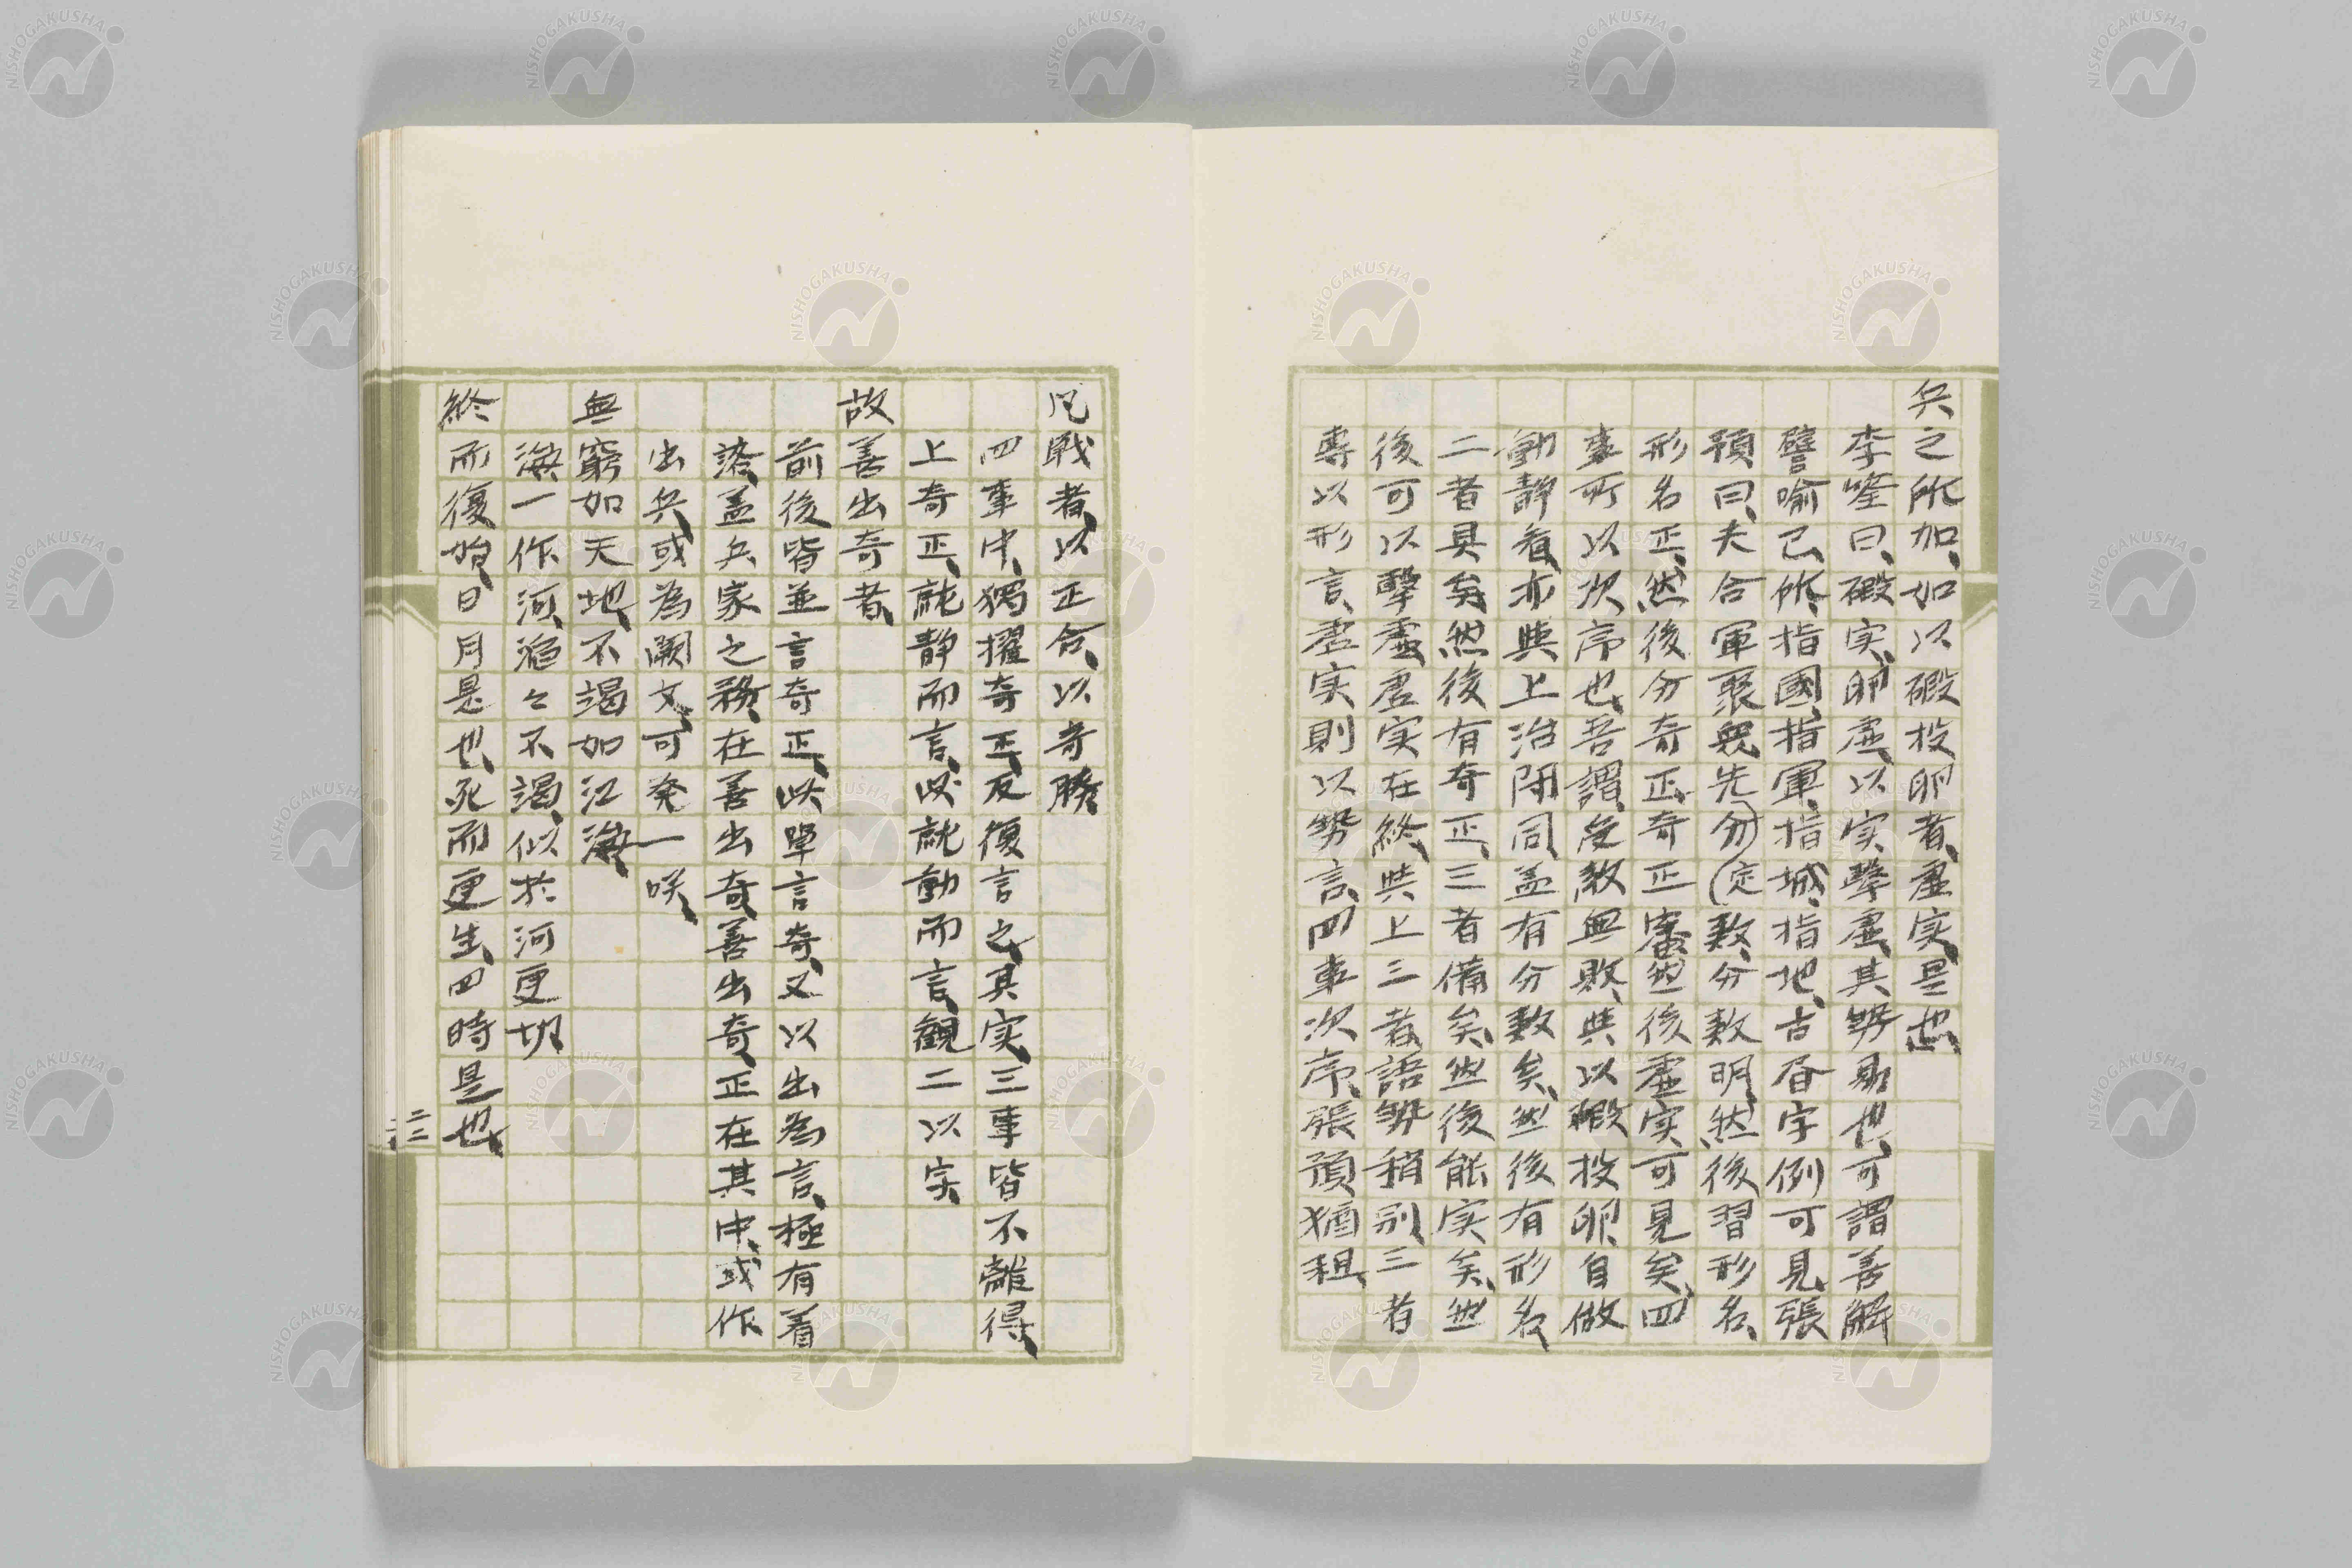 兵之所加、加以碬投卵者、虚実是也、
李筌曰、碬実、卵虚、以実撃虚、其勢易也、可謂善解
譬喩已、所指國、指軍、指城、指地、古昏字例可見、張
預曰、夫合軍聚衆先分(定)数、分数明、然後習形名、
形名正、然後分奇正、奇正審然後虚実可見矣、四
事所以次序也、吾謂受敵無敗、與以碬投卵、自做
動静看、亦與上治閗同、盖有分数矣、然後有形名、
二者具矣然後有奇正、三者備矣、然後能実矣、然
後可以撃虚、虚実在終、與上三者、語勢稍別、三者
専以形言、虚実則以勢言、四事次序、張預猶粗、
凡戦者、以正合、以奇勝、
四事中、獨擢奇正、反復言之、其実三事皆不離得、
上奇正、就静而言、此就動而言、観二以字、
故善出奇者、
前後皆並言奇正、此単言奇、又以出為言、極有着
落、盖兵家之務、在善出奇、善出奇、正在其中、或作
出兵、或為闕文、可発一咲、
無窮如天地、不竭如江海、
海一作河、滔々不竭、似於河更切
終而復始、日月是也、死而更生、四時是也、
二二
NISHOGAKUSHA